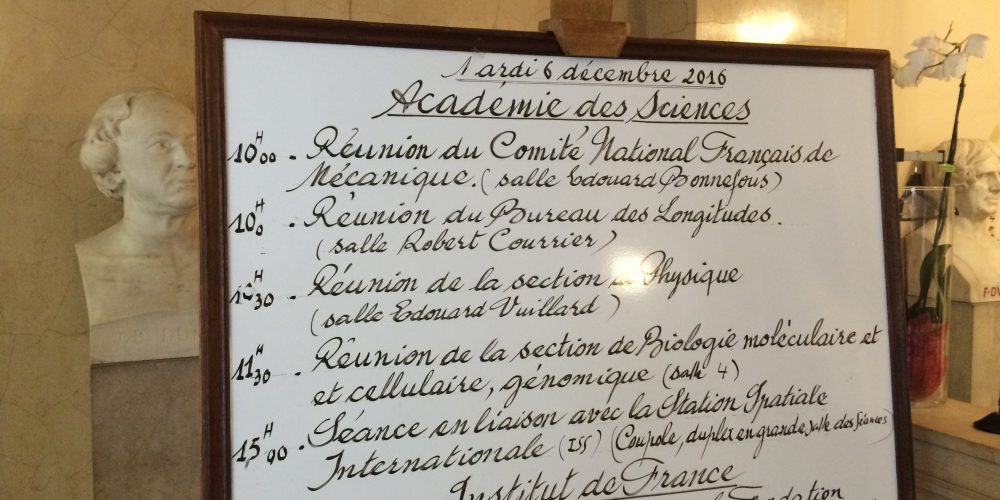 Mardi 6 décembre 2016
Académie des Sciences
10H00 - Réunion du Comité National Français de
Mécanique. (salle Edouard Bonnefous)
10H0 - Réunion du Bureau des Longitudes.
(salle Robert Courrier)
30 - Réunion de la section de Physique
(salle Edouard Vuillard)
11H30 - Réunion de la section de Biologie moléculaire et
et cellulaire, génomique (salle 4)
15H00 - Séance en liaison avec la Station Spatiale
Internationale (ISS) (Coupole, duplex en grande salle des Séances)
Institut de France
Fondation